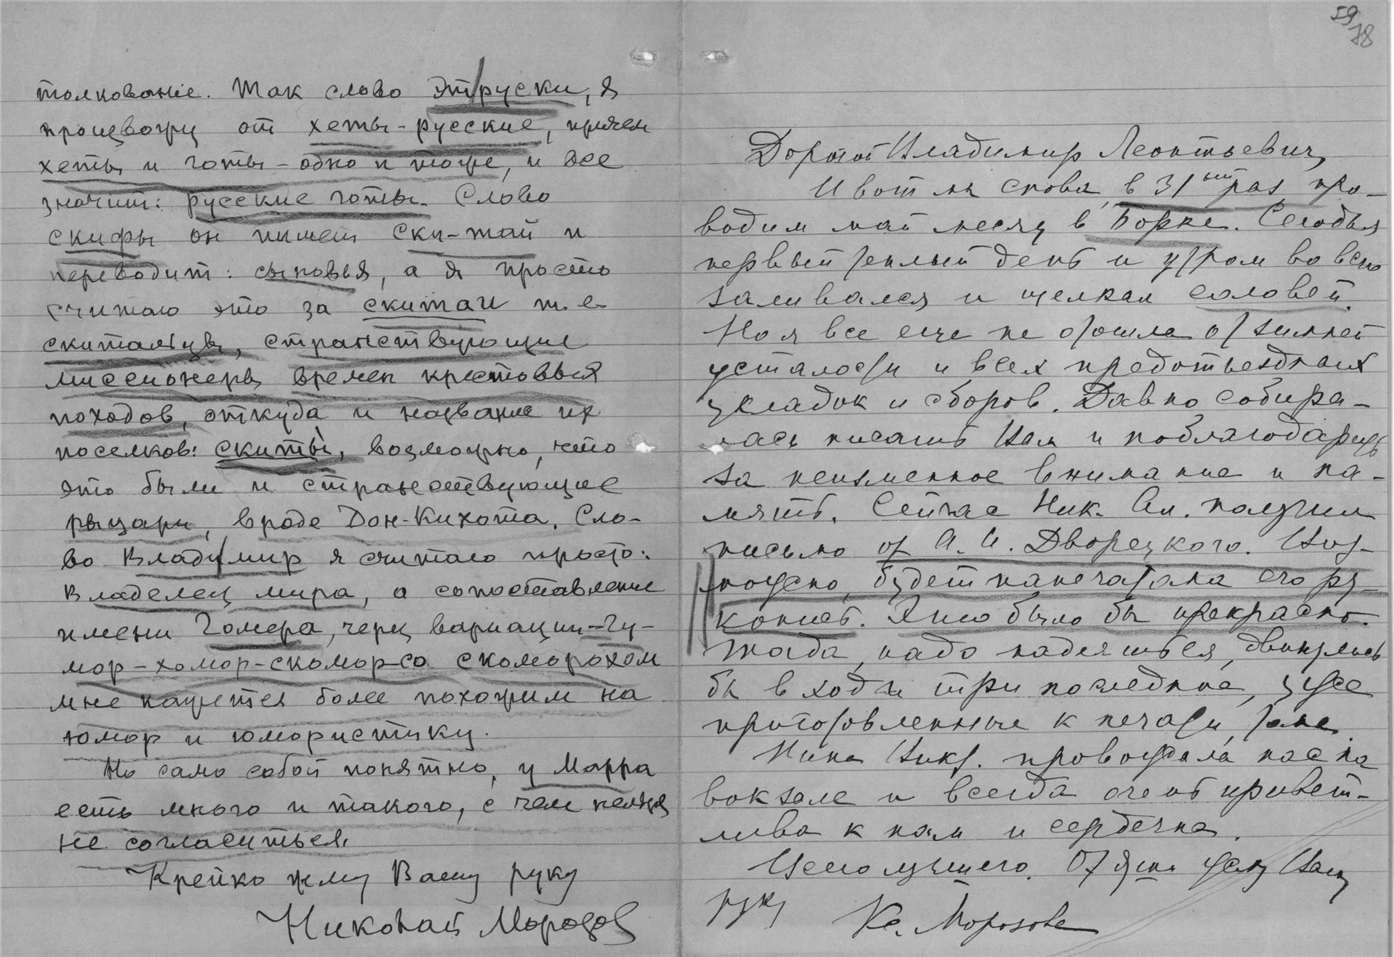 толкованiе. Так слово эт/руски, я
произвожу от хеты-русские, причем
хеты и готы - одно и тоже, и все
значит: русские готы. Слово
скифы он пишет ски-тай и
переводит: сыновья, а я просто
считаю это за скитаи т.е.
скитальцы, странствующие
миссионеры времен крестовых
походов, откуда и название их
поселков: скиты, возможно, что
это были и странствующие
рыцари, вроде Дон-Кихота. Сло-
во Влады/мир я считаю просто:
Владелец мира, а сопоставление
имени Гомера, через вариации - гу-
мор-хомор-скомор со скоморохом
мне кажется более похожим на
юмор и юмористику.
Но само собой понятно, у Марра
есть много и такого, с чем нельзя
не согласиться.
Крепко жму Вашу руку
Николай Морозов
59
78
Дорогой Владимир Леонтьевич,
И вот мы снова в 31ый раз про-
водим май месяц в Борке. Сегодня
первый теплый день и утром во всю
заливался и щелкал соловей.
Но я все еще не отошла от зимней
усталости и всех предотъездных
укладок и сборов. Давно собира-
лась писать Вам и поблагодарить
за неизменное внимание и па-
мять. Сейчас Ник. Ал. получил
письмо от А. И. Дворецкого. Воз-
можно, будет напечатана его ру-
копись. Это было бы прекрасно.
Тогда, надо надеяться, двинулись
бы в ход и три последние, уже
приготовленные к печати, тома.
Нина Викт. провожала нас на
вокзале и всегда очень привет-
лива к нам и сердечна.
Всего лучшего. От души жму Вашу
руку Кс. Морозова